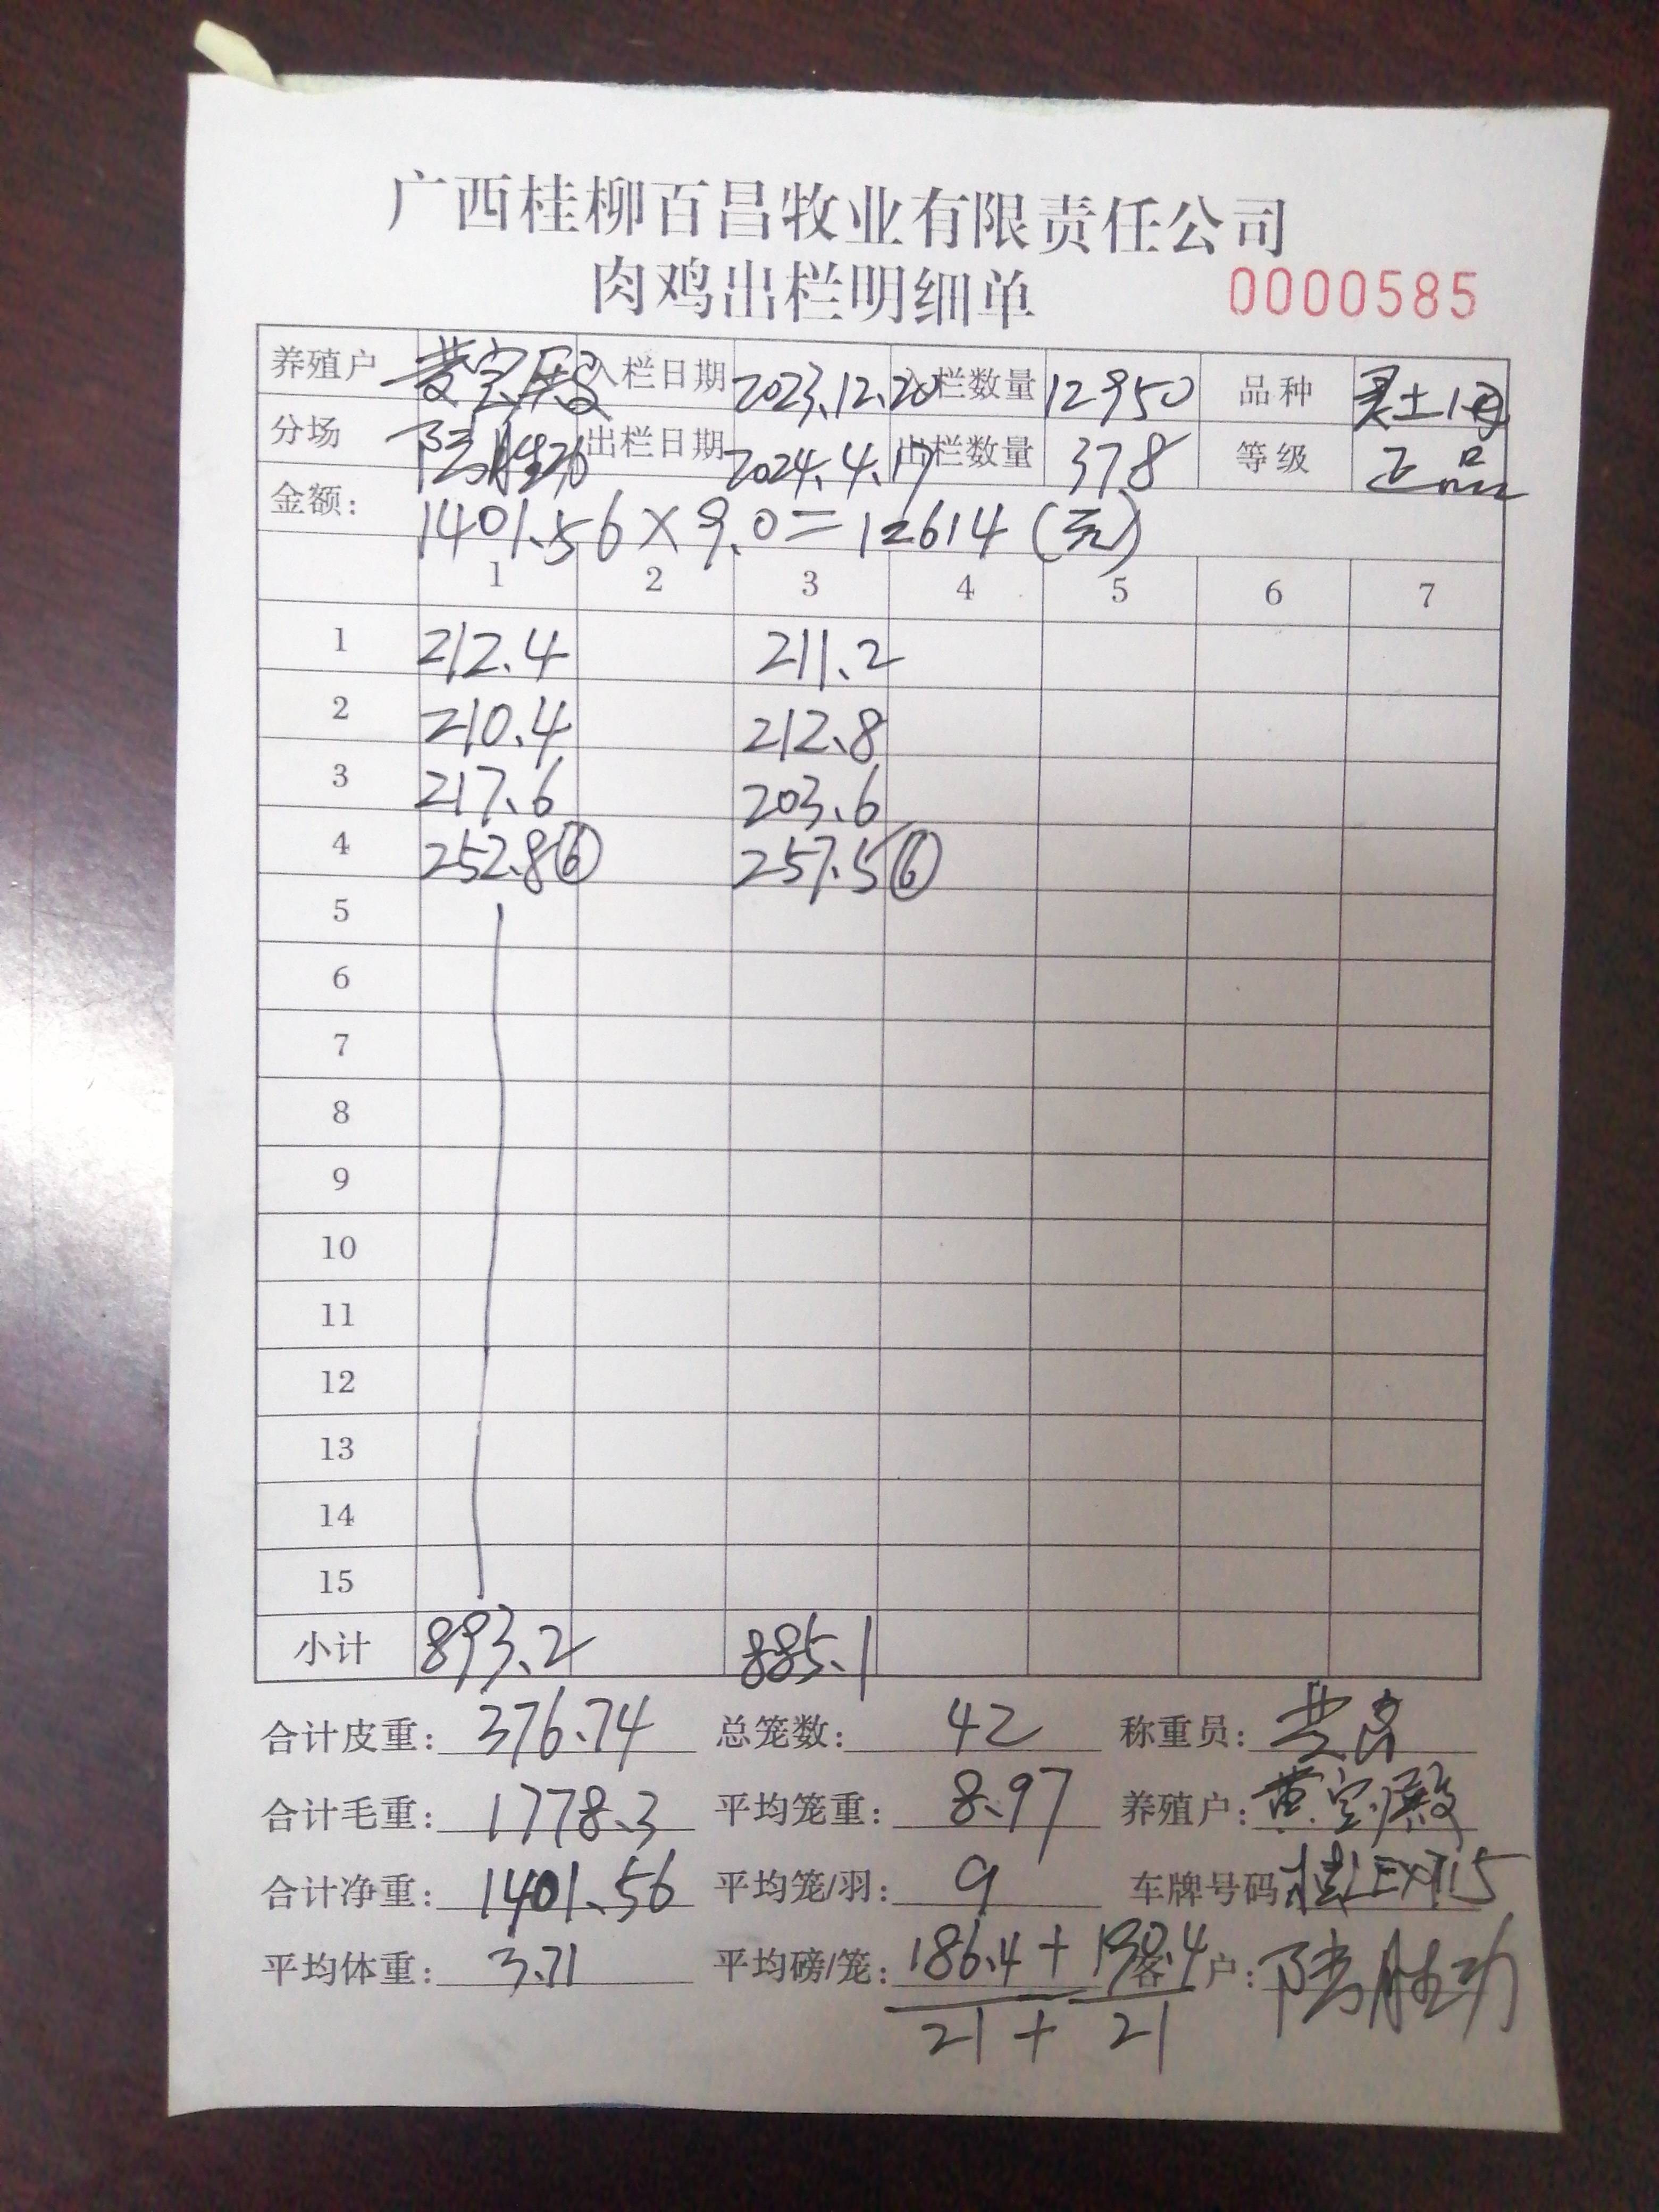 广西桂柳百昌牧业有限责任公司
肉鸡出栏明细单 0000585
养殖户 黄宝殿 入栏日期 2023.12.20 入栏数量 12950 品种
分场 陆胜功 出栏日期 2024.4.17 出栏数量 378 等级 正品
金额: 1401.56×9.0=12614(元)
1 2 3 4 5 6 7
1 212.4 211.2
2 210.4 212.8
3 217.6 203.6
4 252.8⑥ 257.5⑥
5
6
7
8
9
10
11
12
13
14
15
小计 893.2 885.1
合计皮重: 376.74 总笼数: 42 称重员:
合计毛重: 1778.3 平均笼重: 8.97 养殖户: 黄宝殿
合计净重: 1401.56 平均笼/羽: 9 车牌号码
平均体重: 3.71 平均磅/笼: 186.4+190.4 客户: 陆胜功
21+21